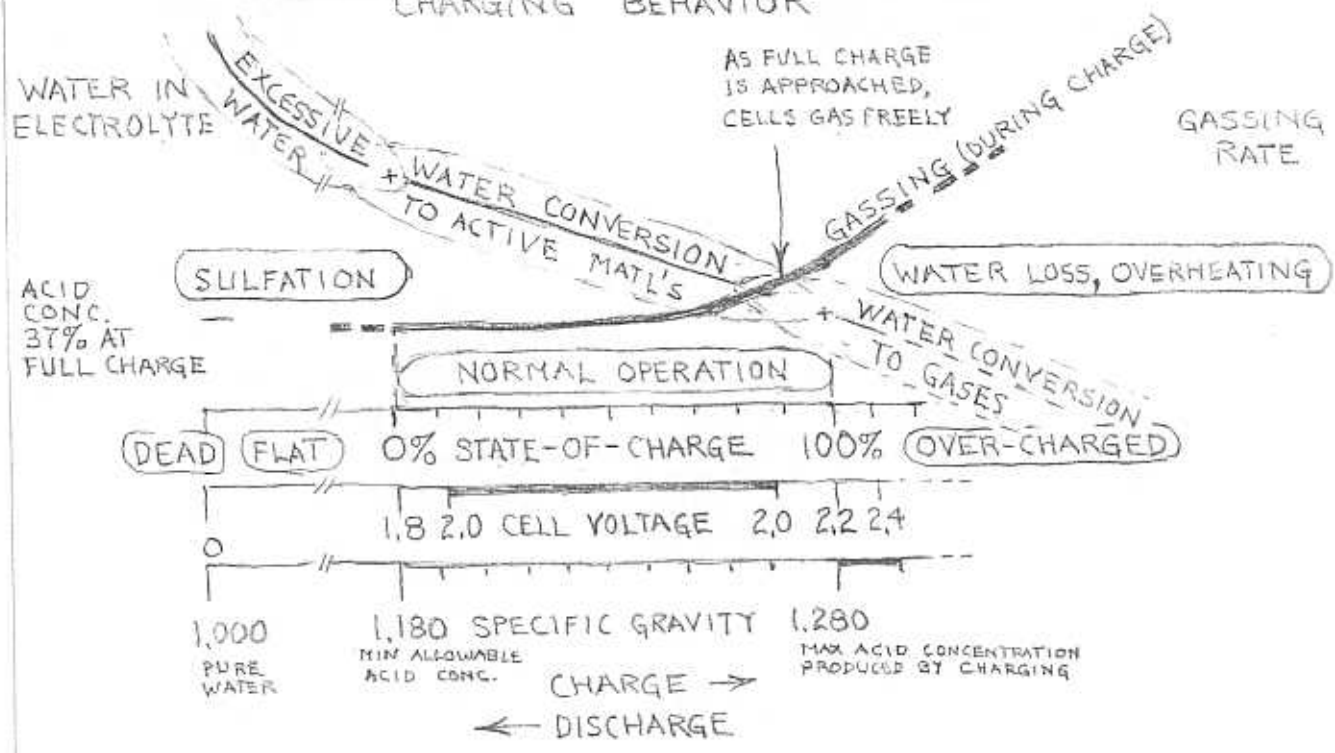 CHARGING BEHAVIOR
WATER IN
ELECTROLYTE
EXCESSIVE
WATER
+ WATER CONVERSION
TO ACTIVE MATL'S
AS FULL CHARGE
IS APPROACHED,
CELLS GAS FREELY
GASSING (DURING CHARGE)
GASSING
RATE
SULFATION
WATER LOSS, OVERHEATING
ACID
CONC.
37% AT
FULL CHARGE
+ WATER CONVERSION
TO GASES
NORMAL OPERATION
DEAD FLAT 0% STATE-OF-CHARGE 100% OVER-CHARGED
0 1.8 2.0 CELL VOLTAGE 2.0 2.2 2.4
1.000 1.180 SPECIFIC GRAVITY 1.280
PURE
WATER
MIN ALLOWABLE
ACID CONC.
MAX ACID CONCENTRATION
PRODUCED BY CHARGING
CHARGE →
← DISCHARGE